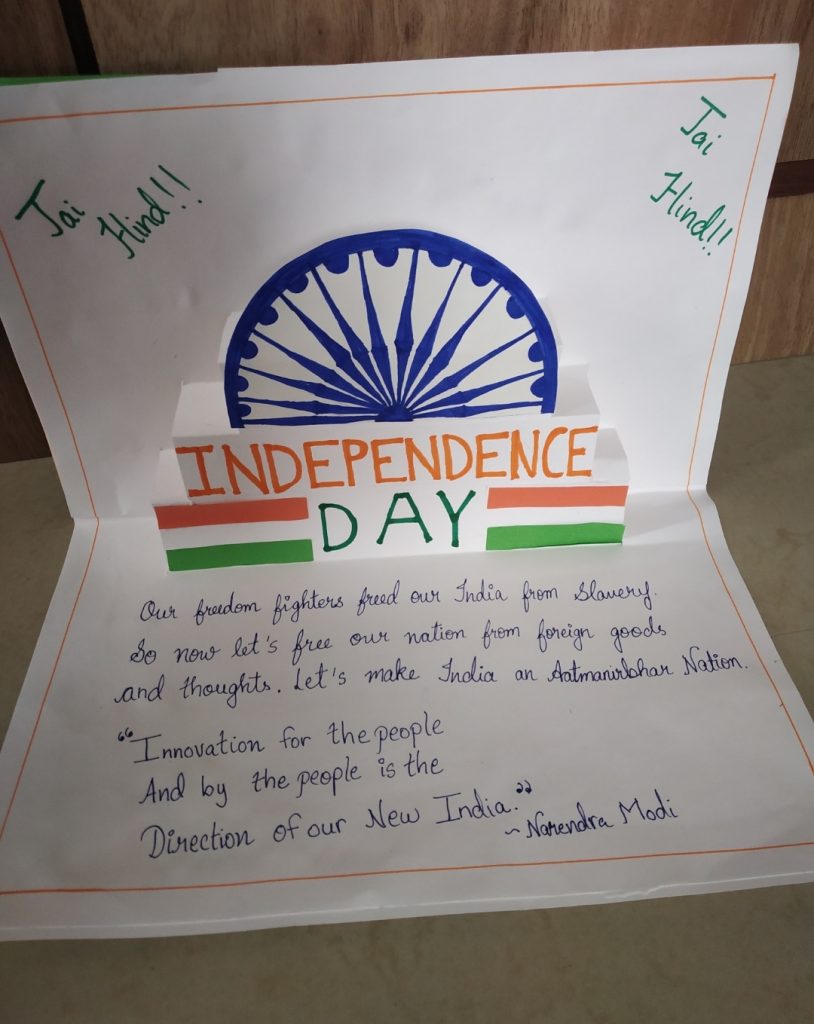 Jai
Hind!!
Jai
Hind!!
INDEPENDENCE
DAY
Our freedom fighters freed our India from Slavery.
So now let's free our nation from foreign goods
and thoughts. Let's make India an Aatmanirbhar Nation.
"Innovation for the people
And by the people is the
Direction of our New India."
~ Narendra Modi